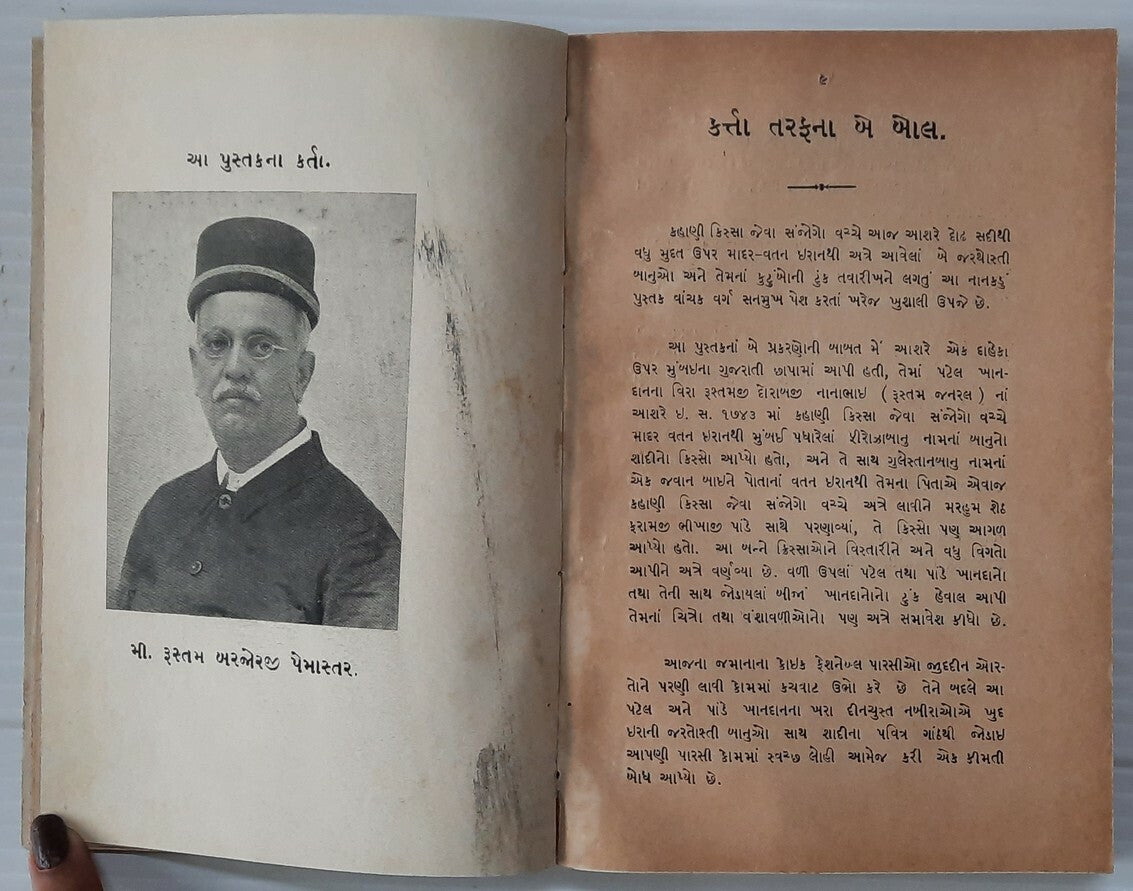 આ પુસ્તકના કર્તા.
મી. રૂસ્તમ બરજોરજી પેમાસ્તર.
૯
કર્ત્તા તરફના બે બોલ.
કહાણી કિસ્સા જેવા સંજોગો વચ્ચે આજ આશરે દોઢ સદીથી
વધુ મુદત ઉપર માદર-વતન ઇરાનથી અત્રે આવેલાં બે જરથોસ્તી
બાનુઓ અને તેમનાં કુટુંબોની ટુંક તવારીખને લગતું આ નાનકડું
પુસ્તક વાંચક વર્ગ સનમુખ પેશ કરતાં ખરેજ ખુશાલી ઉપજે છે.
આ પુસ્તકનાં બે પ્રકરણોની બાબત મેં આશરે એક દાહેકા
ઉપર મુંબઇના ગુજરાતી છાપામાં આપી હતી, તેમાં પટેલ ખાન-
દાનના વિરા રૂસ્તમજી દોરાબજી નાનાભાઇ ( રૂસ્તમ જનરલ ) નાં
આશરે ઇ. સ. ૧૭૪૩ માં કહાણી કિસ્સા જેવા સંજોગો વચ્ચે
માદર વતન ઇરાનથી મુંબઈ પધારેલાં ફીરોઝાબાનુ નામનાં બાનુનો
શાદીનો કિસ્સો આપ્યો હતો, અને તે સાથ ગુલેસ્તાનબાનુ નામનાં
એક જવાન બાઇને પોતાનાં વતન ઇરાનથી તેમના પિતાએ એવાજ
કહાણી કિસ્સા જેવા સંજોગો વચ્ચે અત્રે લાવીને મરહુમ શેઠ
ફરામજી ભીખાજી પાંડે સાથે પરણાવ્યાં, તે કિસ્સો પણ આગળ
આપ્યો હતો. આ બન્ને કિસ્સાઓને વિસ્તારીને અને વધુ વિગતો
આપીને અત્રે વર્ણવ્યા છે. વળી ઉપલાં પટેલ તથા પાંડે ખાનદાનો
તથા તેની સાથ જોડાયલાં બીજાં ખાનદાનોનો ટુંક હેવાલ આપી
તેમનાં ચિત્રો તથા વંશાવળીઓનો પણ અત્રે સમાવેશ કીધો છે.
આજના જમાનાના કોઇક ફેશનેબલ પારસીઓ જુદદીન ઓર-
તોને પરણી લાવી કોમમાં કચવાટ ઉભો કરે છે તેને બદલે આ
પટેલ અને પાંડે ખાનદાનના ખરા દીનચુસ્ત નબીરાઓએ ખુદ
ઇરાની જરતોસ્તી બાનુઓ સાથ શાદીના પવિત્ર ગાંઠથી જોડાઇ
આપણી પારસી કોમમાં સ્વચ્છ લોહી આમેજ કરી એક કીમતી
બોધ આપ્યો છે.